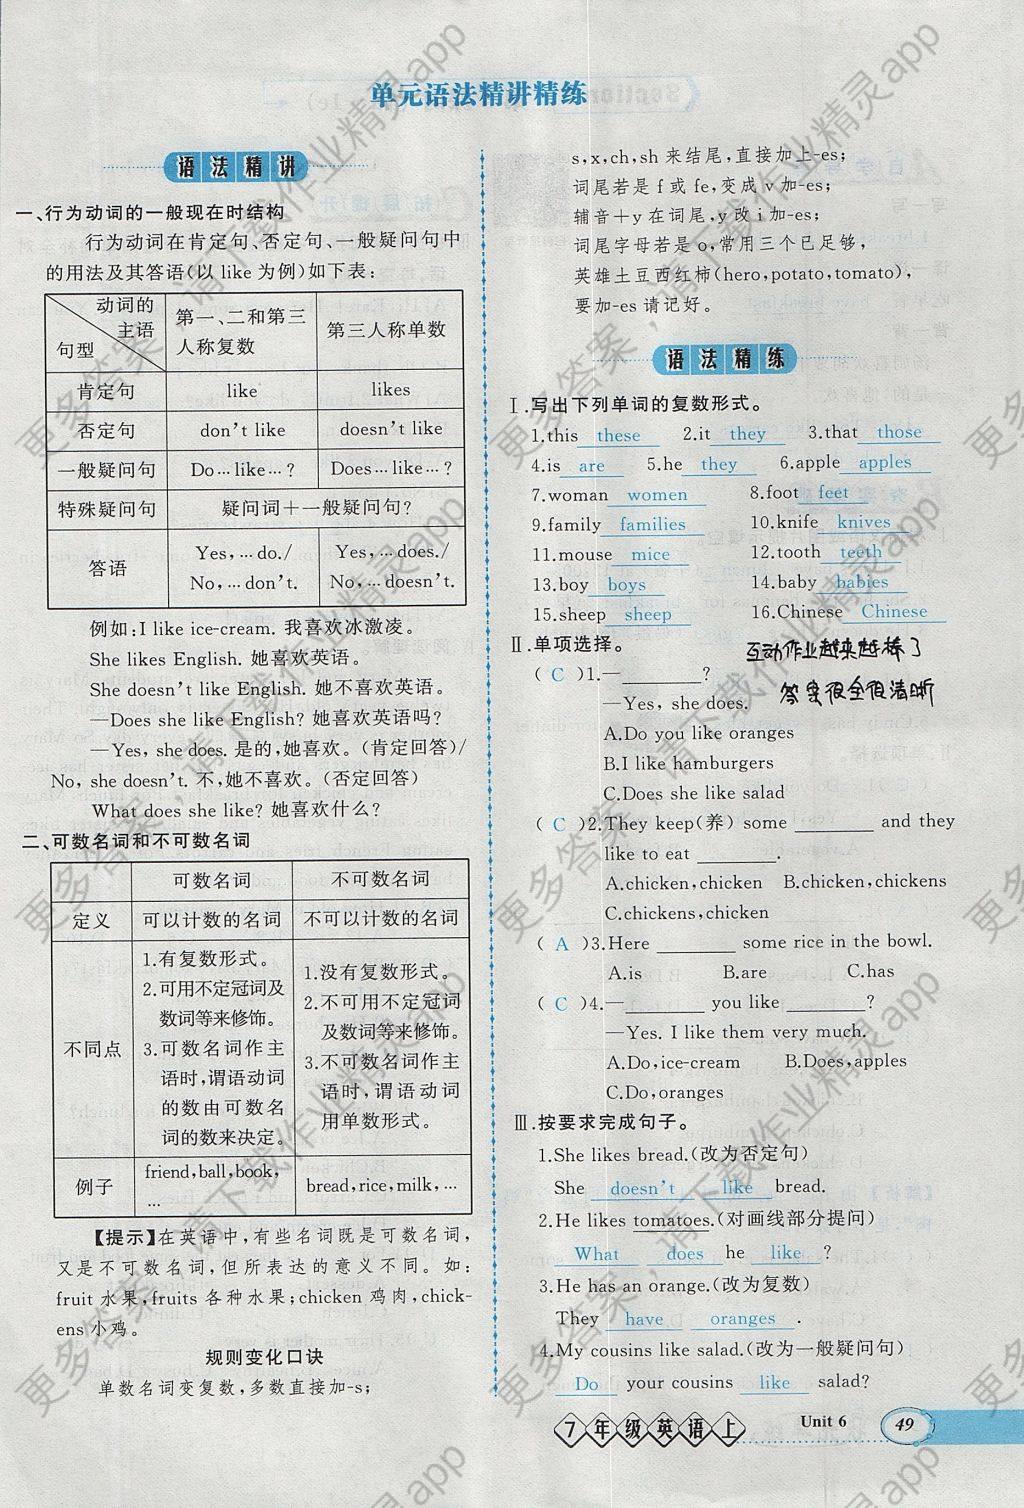 单元语法精讲精练
语法精讲
一、行为动词的一般现在时结构
行为动词在肯定句、否定句、一般疑问句中
的用法及其答语(以 like 为例)如下表:
动词的
主语
句型
第一、二和第三
人称复数
第三人称单数
肯定句 like likes
否定句 don't like doesn't like
一般疑问句 Do…like…? Does…like…?
特殊疑问句 疑问词+一般疑问句?
答语
Yes,…do./
No,…don't.
Yes,…does./
No,…doesn't.
例如:I like ice-cream. 我喜欢冰激凌。
She likes English. 她喜欢英语。
She doesn't like English. 她不喜欢英语。
—Does she like English? 她喜欢英语吗?
—Yes, she does. 是的,她喜欢。(肯定回答)/
No, she doesn't. 不,她不喜欢。(否定回答)
What does she like? 她喜欢什么?
二、可数名词和不可数名词
可数名词 不可数名词
定义 可以计数的名词 不可以计数的名词
不同点
1.有复数形式。
2.可用不定冠词及
数词等来修饰。
3.可数名词作主
语时,谓语动词
的数由可数名
词的数来决定。
1.没有复数形式。
2.不可用不定冠词
及数词等来修饰。
3.不可数名词作主
语时,谓语动词
用单数形式。
例子
friend,ball,book,
…
bread,rice,milk,…
【提示】在英语中,有些名词既是可数名词,
又是不可数名词,但所表达的意义不同。如:
fruit 水果,fruits 各种水果;chicken 鸡肉,chick-
ens 小鸡。
规则变化口诀
单数名词变复数,多数直接加-s;
s,x,ch,sh 来结尾,直接加上-es;
词尾若是 f 或 fe,变成 v 加-es;
辅音+y 在词尾,y 改 i 加-es;
词尾字母若是 o,常用三个已足够,
英雄土豆西红柿(hero,potato,tomato),
要加-es 请记好。
语法精练
Ⅰ.写出下列单词的复数形式。
1.this these 2.it they 3.that those
4.is are 5.he they 6.apple apples
7.woman women 8.foot feet
9.family families 10.knife knives
11.mouse mice 12.tooth teeth
13.boy boys 14.baby babies
15.sheep sheep 16.Chinese Chinese
Ⅱ.单项选择。
互动作业越来越棒了
答案很全很清晰
( C )1.—________?
—Yes, she does.
A.Do you like oranges
B.I like hamburgers
C.Does she like salad
( C )2.They keep(养) some ________ and they
like to eat ________.
A.chicken,chicken B.chicken,chickens
C.chickens,chicken
( A )3.Here ________ some rice in the bowl.
A.is B.are C.has
( C )4.—________ you like ________?
—Yes. I like them very much.
A.Do,ice-cream B.Does,apples
C.Do,oranges
Ⅲ.按要求完成句子。
1.She likes bread.(改为否定句)
She doesn't like bread.
2.He likes tomatoes.(对画线部分提问)
What does he like ?
3.He has an orange.(改为复数)
They have oranges .
4.My cousins like salad.(改为一般疑问句)
Do your cousins like salad?
7年级英语上 Unit 6 49
更多答案,请下载作业精灵app
更多答案,请下载作业精灵app
更多答案,请下载作业精灵app